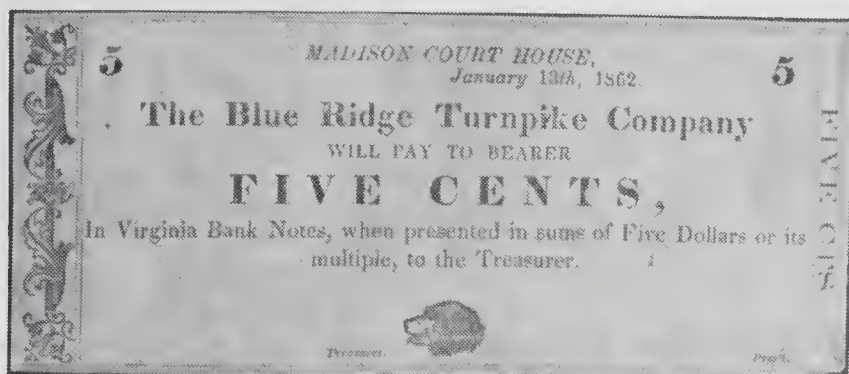 5 MADISON COURT HOUSE, 5
January 13th, 1862.
The Blue Ridge Turnpike Company
WILL PAY TO BEARER
FIVE CENTS,
In Virginia Bank Notes, when presented in sums of Five Dollars or its
multiple, to the Treasurer.
Treasurer. Pres't.
FIVE